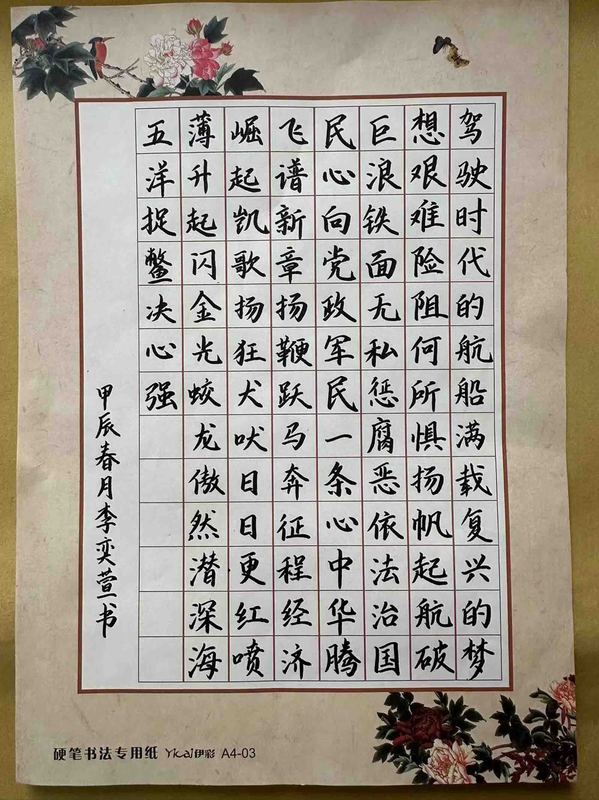 驾驶时代的航船满载复兴的梦
想艰难险阻何所惧扬帆起航破
巨浪铁面无私惩腐恶依法治国
民心向党政军民一条心中华腾
飞谱新章扬鞭跃马奔征程经济
崛起凯歌扬狂犬吠日日更红喷
薄升起闪金光蛟龙傲然潜深海
五洋捉鳖决心强
甲辰春月李奕萱书
硬笔书法专用纸 Yicai伊彩 A4-03